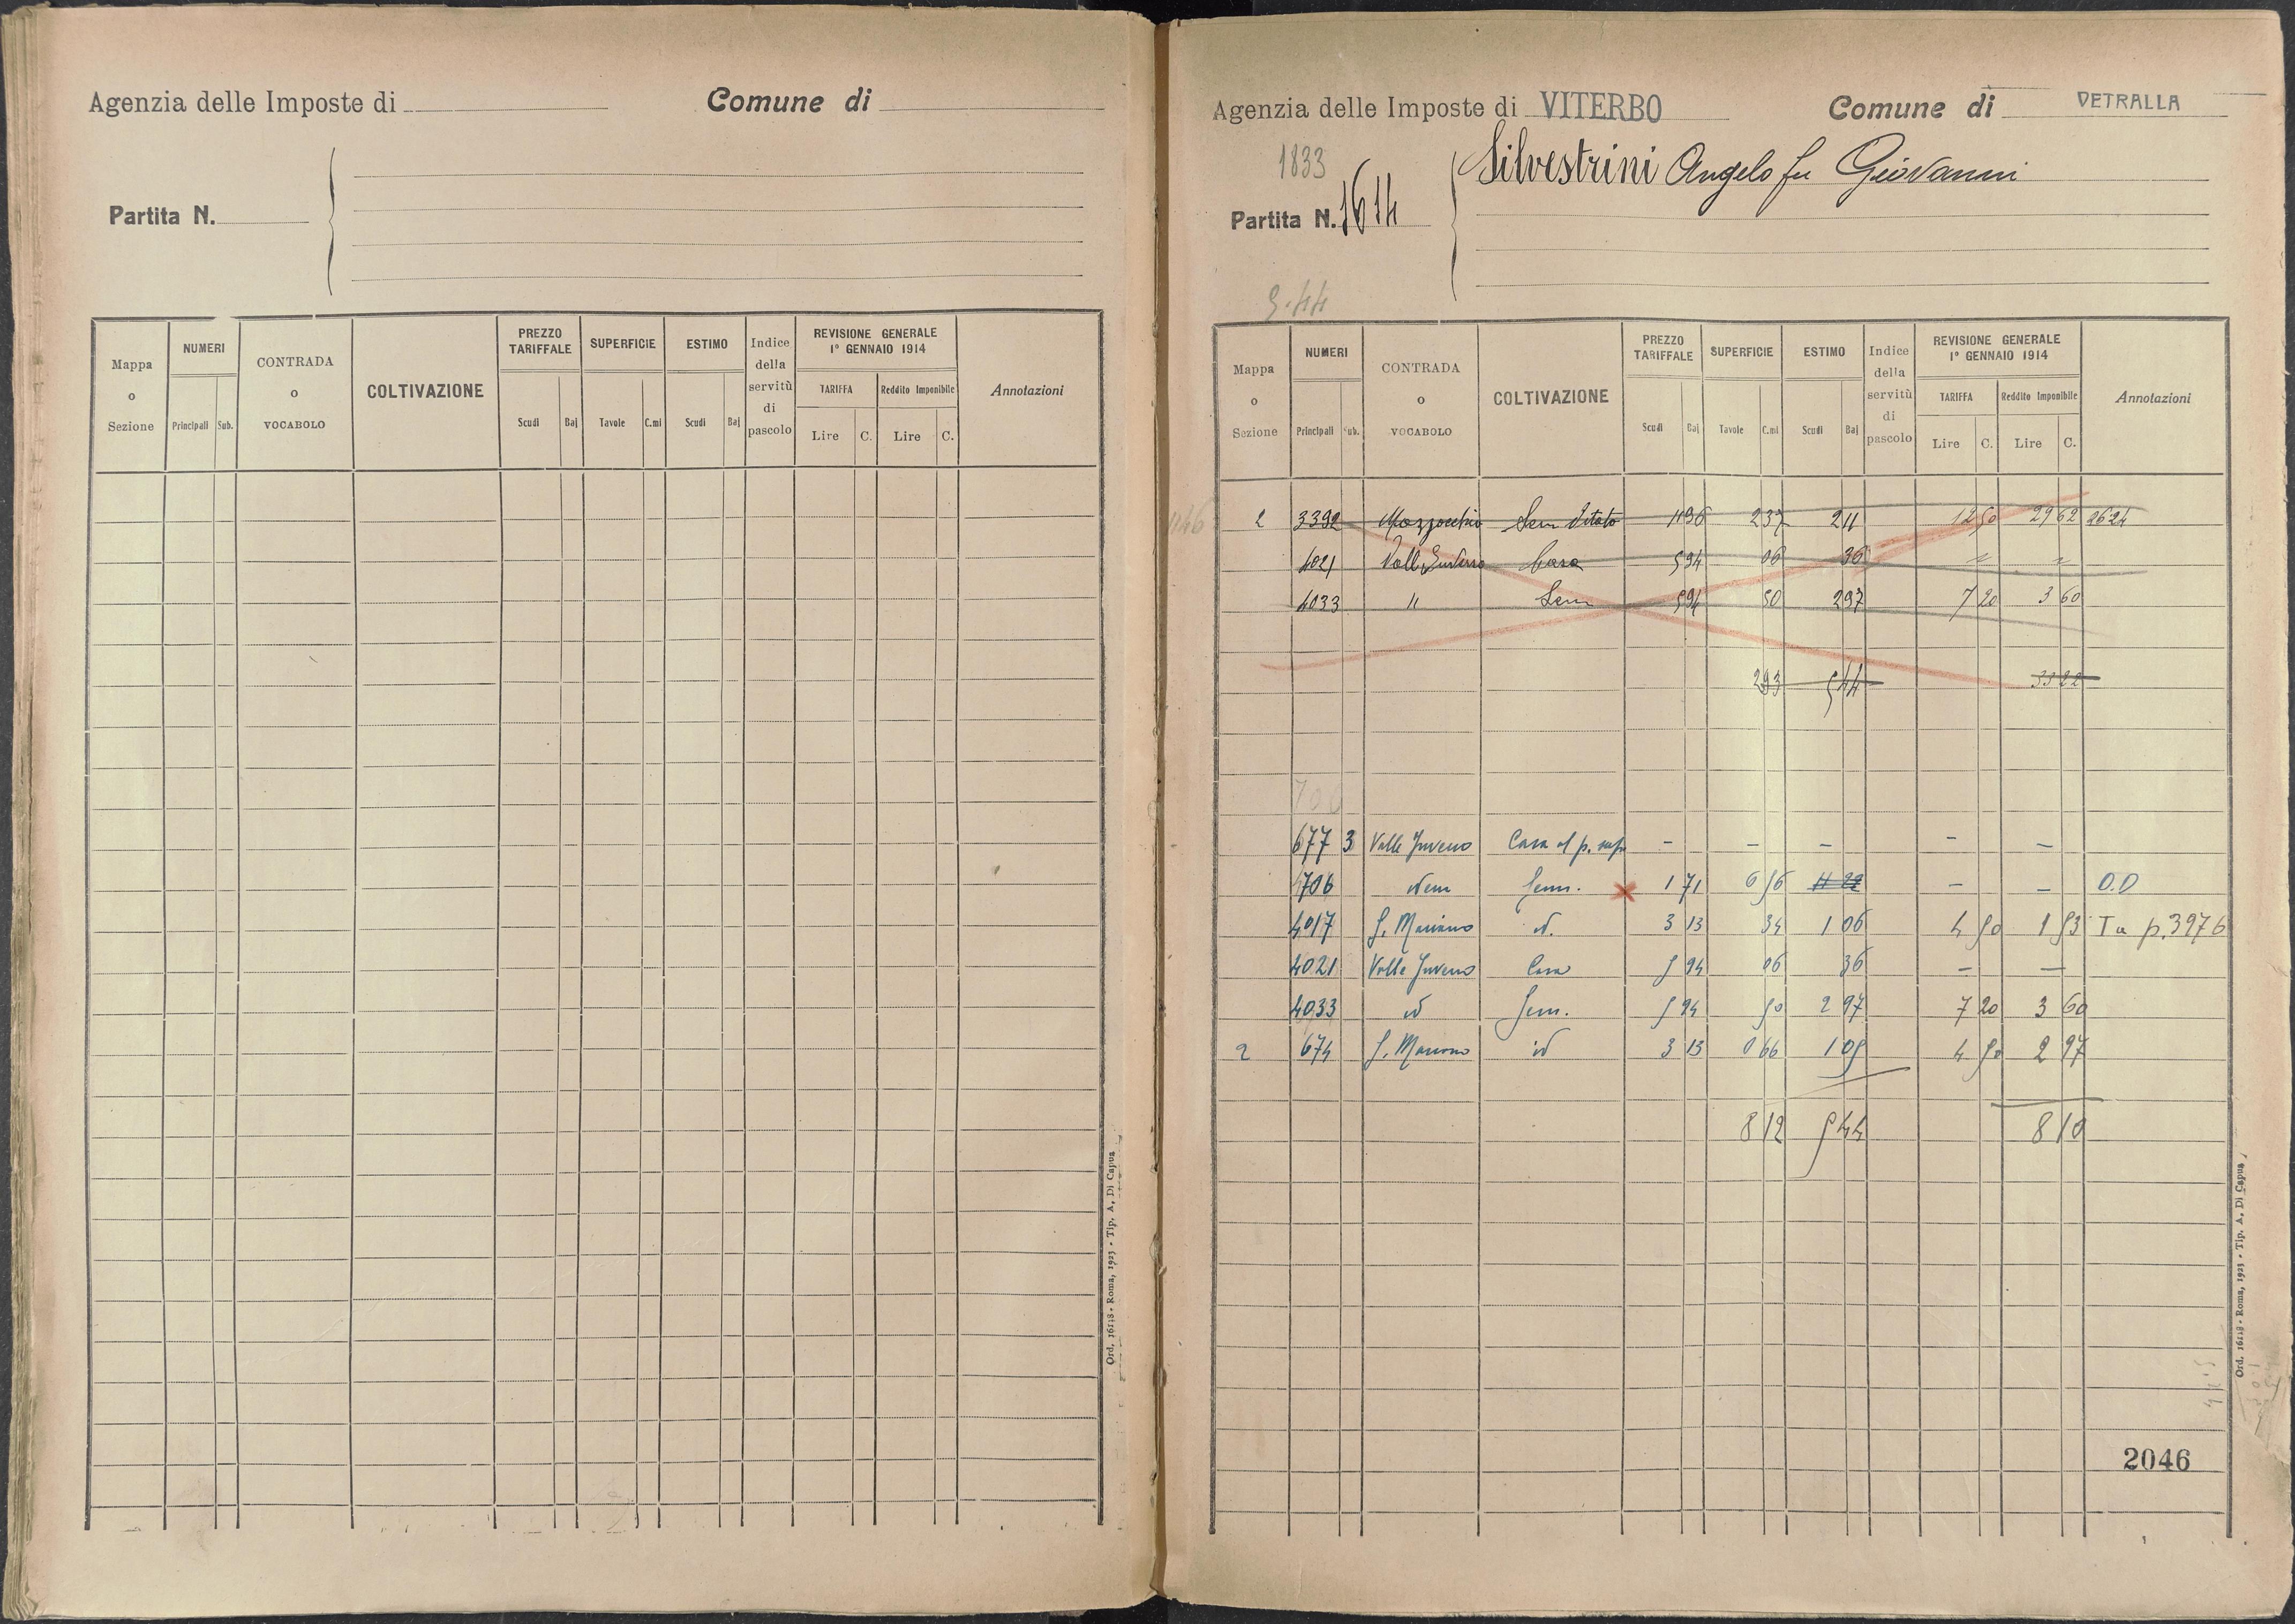 Agenzia delle Imposte di
Comune di
Partita N.
Mappa o Sezione
NUMERI
Principali Sub.
CONTRADA o VOCABOLO
COLTIVAZIONE
PREZZO TARIFFALE
Scudi Baj
SUPERFICIE
Tavole C.mi
ESTIMO
Scudi Baj
Indice della servitù di pascolo
REVISIONE GENERALE
1° GENNAIO 1914
TARIFFA
Lire C.
Reddito Imponibile
Lire C.
Annotazioni
Ord. 16118 - Roma, 1923 - Tip. A. Di Capua
Agenzia delle Imposte di VITERBO
Comune di VETRALLA
1833
Partita N. 1614
Silvestrini Angelo fu Giovanni
5.44
Mappa o Sezione
NUMERI
Principali Sub.
CONTRADA o VOCABOLO
COLTIVAZIONE
PREZZO TARIFFALE
Scudi Baj
SUPERFICIE
Tavole C.mi
ESTIMO
Scudi Baj
Indice della servitù di pascolo
REVISIONE GENERALE
1° GENNAIO 1914
TARIFFA
Lire C.
Reddito Imponibile
Lire C.
Annotazioni
2 3392 Mazzocchio Sem Vitato 237 211 12 50 29 62 2624
4021 Valle Casa 594 06 36 " "
4033 " Sem 594 50 297 7 20 3 60
293 544 33 22
700
677 3 Valle Juveno Casa al p. sup - - - - -
706 idem Sem. 1 71 6 56 11 22 - - O.D
4017 S. Mariano id. 3 13 34 1 06 4 50 1 53 Ta p. 3976
4021 Valle Juveno Casa 5 94 06 36 - -
4033 id Sem. 5 94 50 2 97 7 20 3 60
2 674 S. Mariano id 3 13 0 66 1 05 4 50 2 97
8 12 5 44 8 10
2046
Ord. 16118 - Roma, 1923 - Tip. A. Di Capua